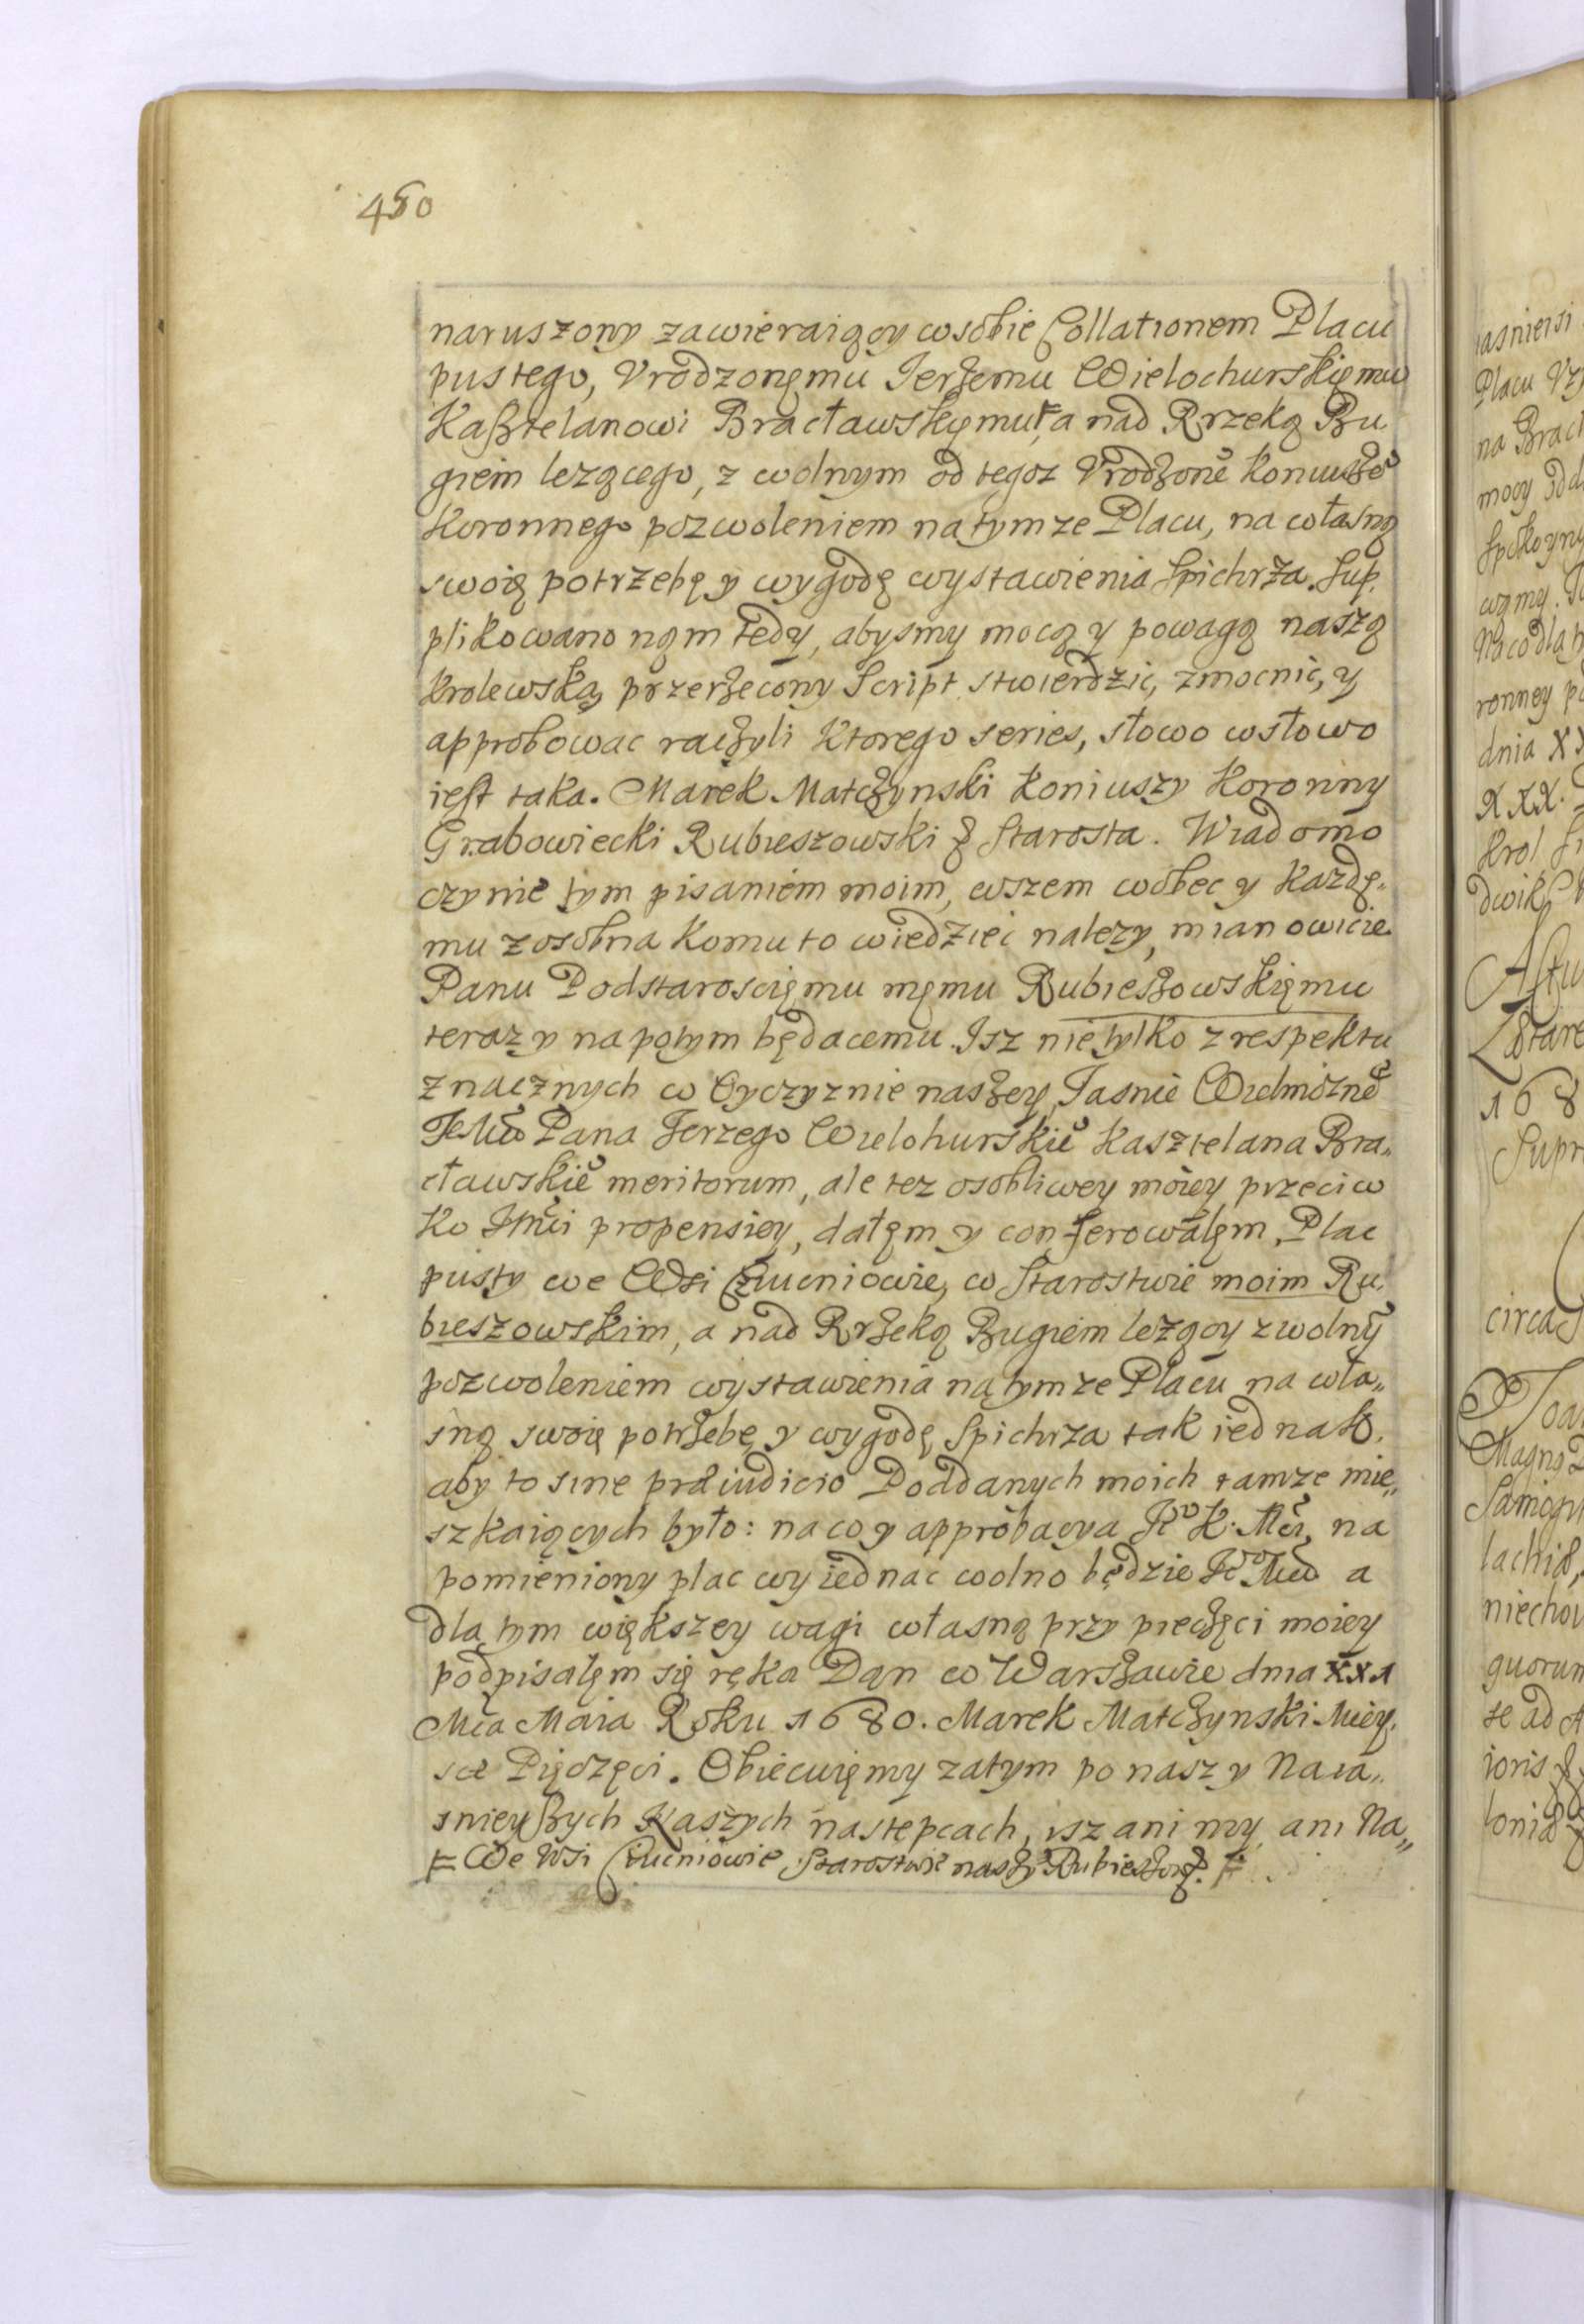 450
naruszony zawieraiący w sobie Collationem Placu
pustego, Vrodzonęmu Jerzemu Wielochurskięmu
Kasztelanowi Bracławskięmu, a nad Rrzeką Bu,
giem lezącego, z wolnym od tegoz Vrodzone͠ Koniusze͠
Koronnego pozwoleniem na tymze Placu, na własną
swoię potrzebę y wygodę wystawienia Spichrza. Sup,
plikowano nąm tedy, abysmy mocą y powagą naszą
krolewską przerzeczony Script stwierdzic, zmocnic, y
approbowac raczyli ktorego series, słowo w słowo
iest taka. Marek Matczynski Koniuszy Koronny
Grabowiecki Rubieszowski & Starosta. Wiadomo
czynie tym pisaniem moim, wszem wobec y kazdę„
mu z osobna komu to wiedziec nalezy, mianowicie
Panu Podstaroscięmu męmu Rubieszowskięmu
teraz y napotym będacemu. Isz nie tylko z respektu
znacznych w Oyczyznie naszey, Jasnie Wielmozne͠
Je͠Mci Pana Jerzego Wielohurskie͠ Kasztelana Bra„
cławskie͠ meritorum, ale tez osobliwey moiey przeciw
ko Jmci propensiey, dałęm y conferowałęm, Plac
pusty we Wsi Czucniowie, w Starostwie moim Ru,
bieszowskim, a nad Rrzeką Bugiem lezący z wolny͠
pozwoleniem wystawienia na tymze Placu na wła„
sną swoię potrzebę y wygodę Spichrza tak iednak,
aby to sine præiudicio Poddanych moich tamze mię„
szkaiących było: na co y approbacya Jo K: Mci, na
pomieniony plac wyiednac wolno będzie Je͠ Mci a
dla tym większey wagi własną przy pieczęci moiey
podpisalęm się ręka Dąn w Warszawie dnia XXI
Mca Maia Roku 1680. Marek Matczynski Miey,
sce Pięczęci. Obiecuięmy zatym po nas y Naia„
snieyszych Naszych nastepcach, isz ani my ani Na„
We Wsi Czucniowie, Starostwie naszy͠ Rubieszow: